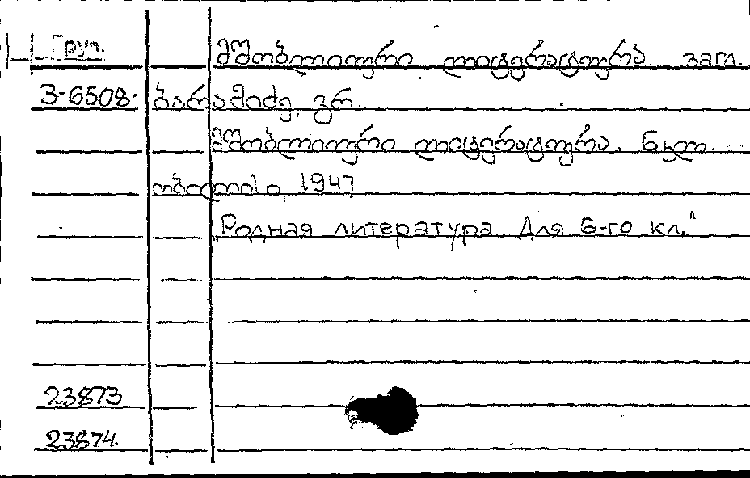 Груз. მშობლიური ლიტერატურა. ვან.
3-6508. ბარამიძე, გრ.
მშობლიური ლიტერატურა. 6 კლ.
თბილისი, 1947
„Родная литература. Для 6-го кл."
23873
23874.